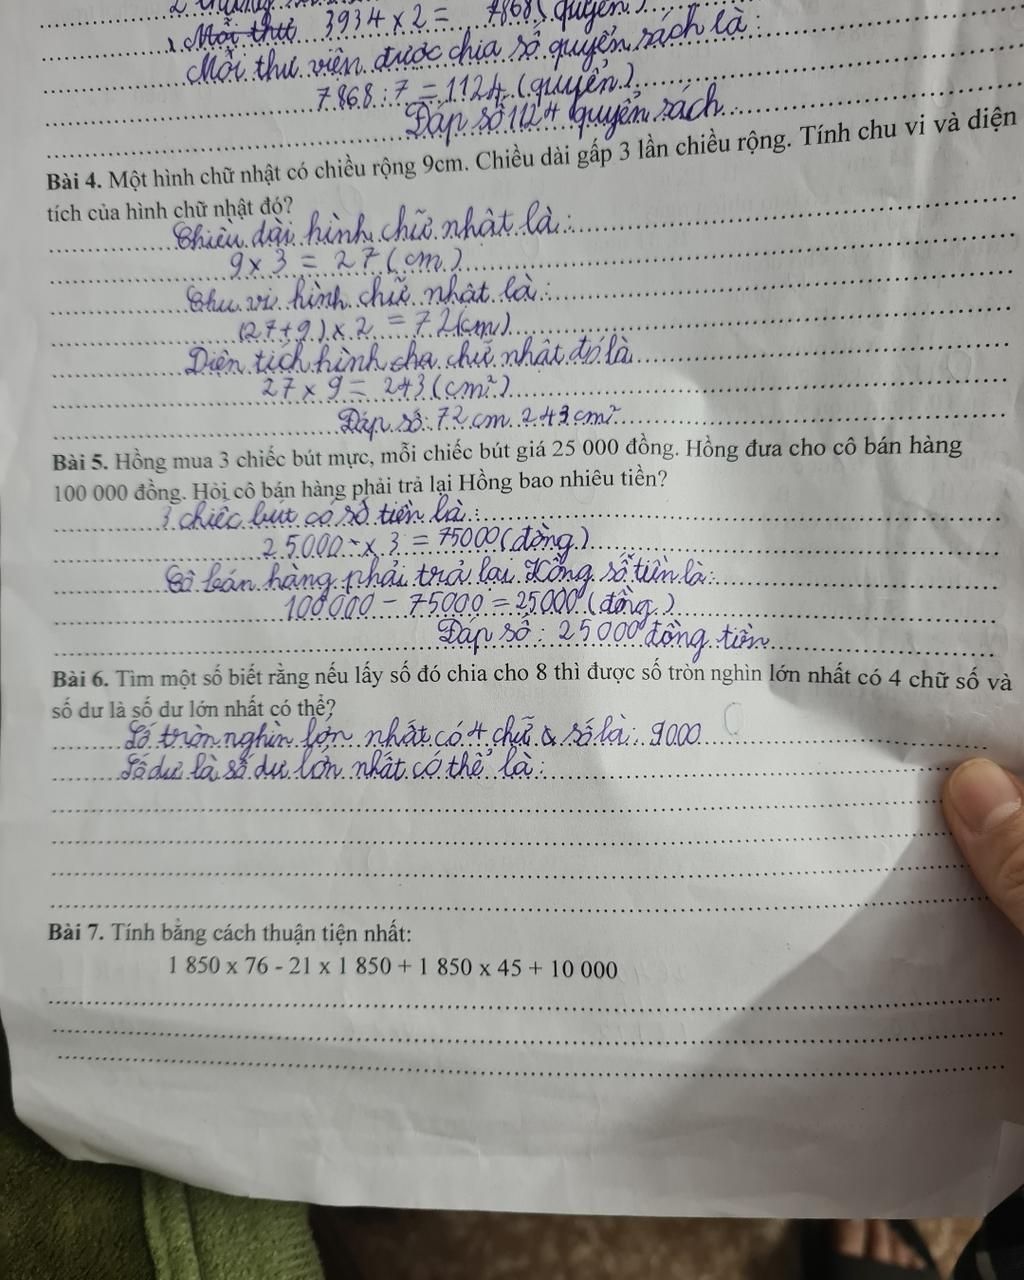 Mỗi thư 3934 x 2 = 7868 (quyển)
Mỗi thư viện được chia số quyển sách là:
7868 : 7 = 1124 (quyển)
Đáp số 1124 quyển sách
Bài 4. Một hình chữ nhật có chiều rộng 9cm. Chiều dài gấp 3 lần chiều rộng. Tính chu vi và diện
tích của hình chữ nhật đó?
Chiều dài hình chữ nhật là:
9 x 3 = 27 (cm)
Chu vi hình chữ nhật là:
(27+9) x 2 = 72 (cm)
Diện tích hình cha chữ nhật đó là
27 x 9 = 243 (cm²)
Đáp số: 72 cm 243 cm²
Bài 5. Hồng mua 3 chiếc bút mực, mỗi chiếc bút giá 25 000 đồng. Hồng đưa cho cô bán hàng
100 000 đồng. Hỏi cô bán hàng phải trả lại Hồng bao nhiêu tiền?
3 chiếc bút có số tiền là:
25000 x 3 = 75000 (đồng)
Cô bán hàng phải trả lại Hồng số tiền là:
100000 - 75000 = 25000 (đồng)
Đáp số: 25000 đồng tiền
Bài 6. Tìm một số biết rằng nếu lấy số đó chia cho 8 thì được số tròn nghìn lớn nhất có 4 chữ số và
số dư là số dư lớn nhất có thể?
Số tròn nghìn lớn nhất có 4 chữ số là: 9000
Số dư là số dư lớn nhất có thể là:
Bài 7. Tính bằng cách thuận tiện nhất:
1 850 x 76 - 21 x 1 850 + 1 850 x 45 + 10 000